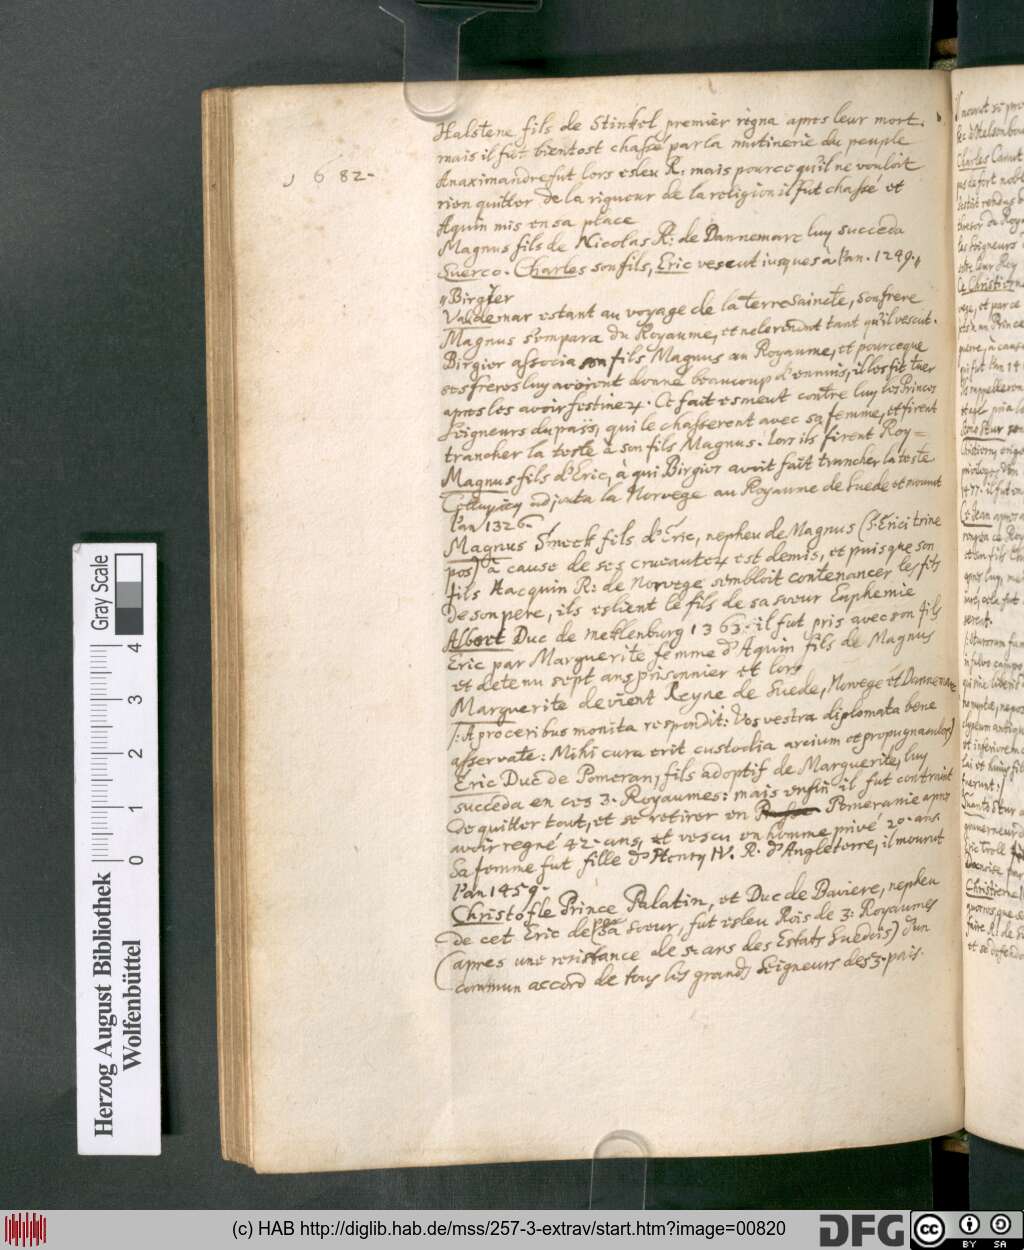 1682.
Halstene fils de Stinkel premier regna apres leur mort.
mais il fut bientost chassé par la mutinerie du peuple
Anaximandre fut lors esleu R: mais pource qu'il ne vouloit
rien quitter de la rigueur de la religion il fut chassé et
Aquin mis en sa place
Magnus fils de Nicolas R: de Dannemarc luy succeda
Suerco. Charles son fils, Eric vescut iusques à l'an. 1249.
Birgier
Valdemar estant au voyage de la terre Saincte, son frere
Magnus s'empara du Royaume, et ne le rendit tant qu'il vescut.
Birgier associa son fils Magnus au Royaume, et pource que
ses freres luy avoiront donne beaucoup d'ennuis, il les fit tuer
apres les avoir festinez. Ce fait esmeut contre luy les Princes
Seigneurs du païs, qui le chasserent avec sa femme, et firent
trancher la teste à son fils Magnus. Lors ils firent Roy=
Magnus fils d'Eric, à qui Birgier avoit fait trancher la teste
Cettuycy adjouta la Norvege au Royaume de Suede et mourut
l'an 1326.
Magnus Smeck fils d'Eric, nepheu de Magnus (s. Erici trine
pos) à cause de ses cruautez est demis, et puis que son
fils Hacquin R: de Norvege sembloit contenancer les fits
de son pere, ils eslient le fils de sa soeur Euphemie
Albert Duc de Meklenburg 1363. il fut pris avec son fils
Eric par Marguerite femme d'Aquin fils de Magnus
et detenu sept ans prisonnier et lors
Marguerite devient Reyne de Suede, Norvege et Dannemarc
/: A proceribus monita respondit: Vos vestra diplomata bene
asservate: Mihi cura erit custodia arcium et propugnaculor)
Eric Duc de Pomeran, fils adoptif de Marguerite, luy
succeda en ces 3. Royaumes: mais enfin il fut contraint
de quitter tout, et se retirer en Pomeranie apres
avoir regné 42. ans, et vescu en homme privé 20. ans.
Sa femme fut fille d'Henry IV. R. d'Angleterre, il mourut
l'an 1459.
Christofle Prince Palatin, et Duc de Baviere, nepheu
de cet Eric de (par sa soeur, fut esleu Rois de 3: Royaumes
(apres une resistance de 5: ans des Estats Suedois) d'un
commun accord de tous les grands Seigneurs des 3. pais.
Herzog August Bibliothek
Wolfenbüttel
0 1 2 3 4
Gray Scale
(c) HAB http://diglib.hab.de/mss/257-3-extrav/start.htm?image=00820
DFG
cc BY SA